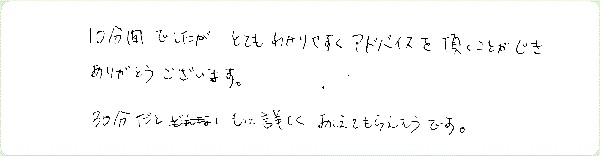 10分間でしたが とても わかりやすく アドバイスを 頂くことができ
ありがとうございます。
30分だと もっと詳しく おしえてもらえそうです。